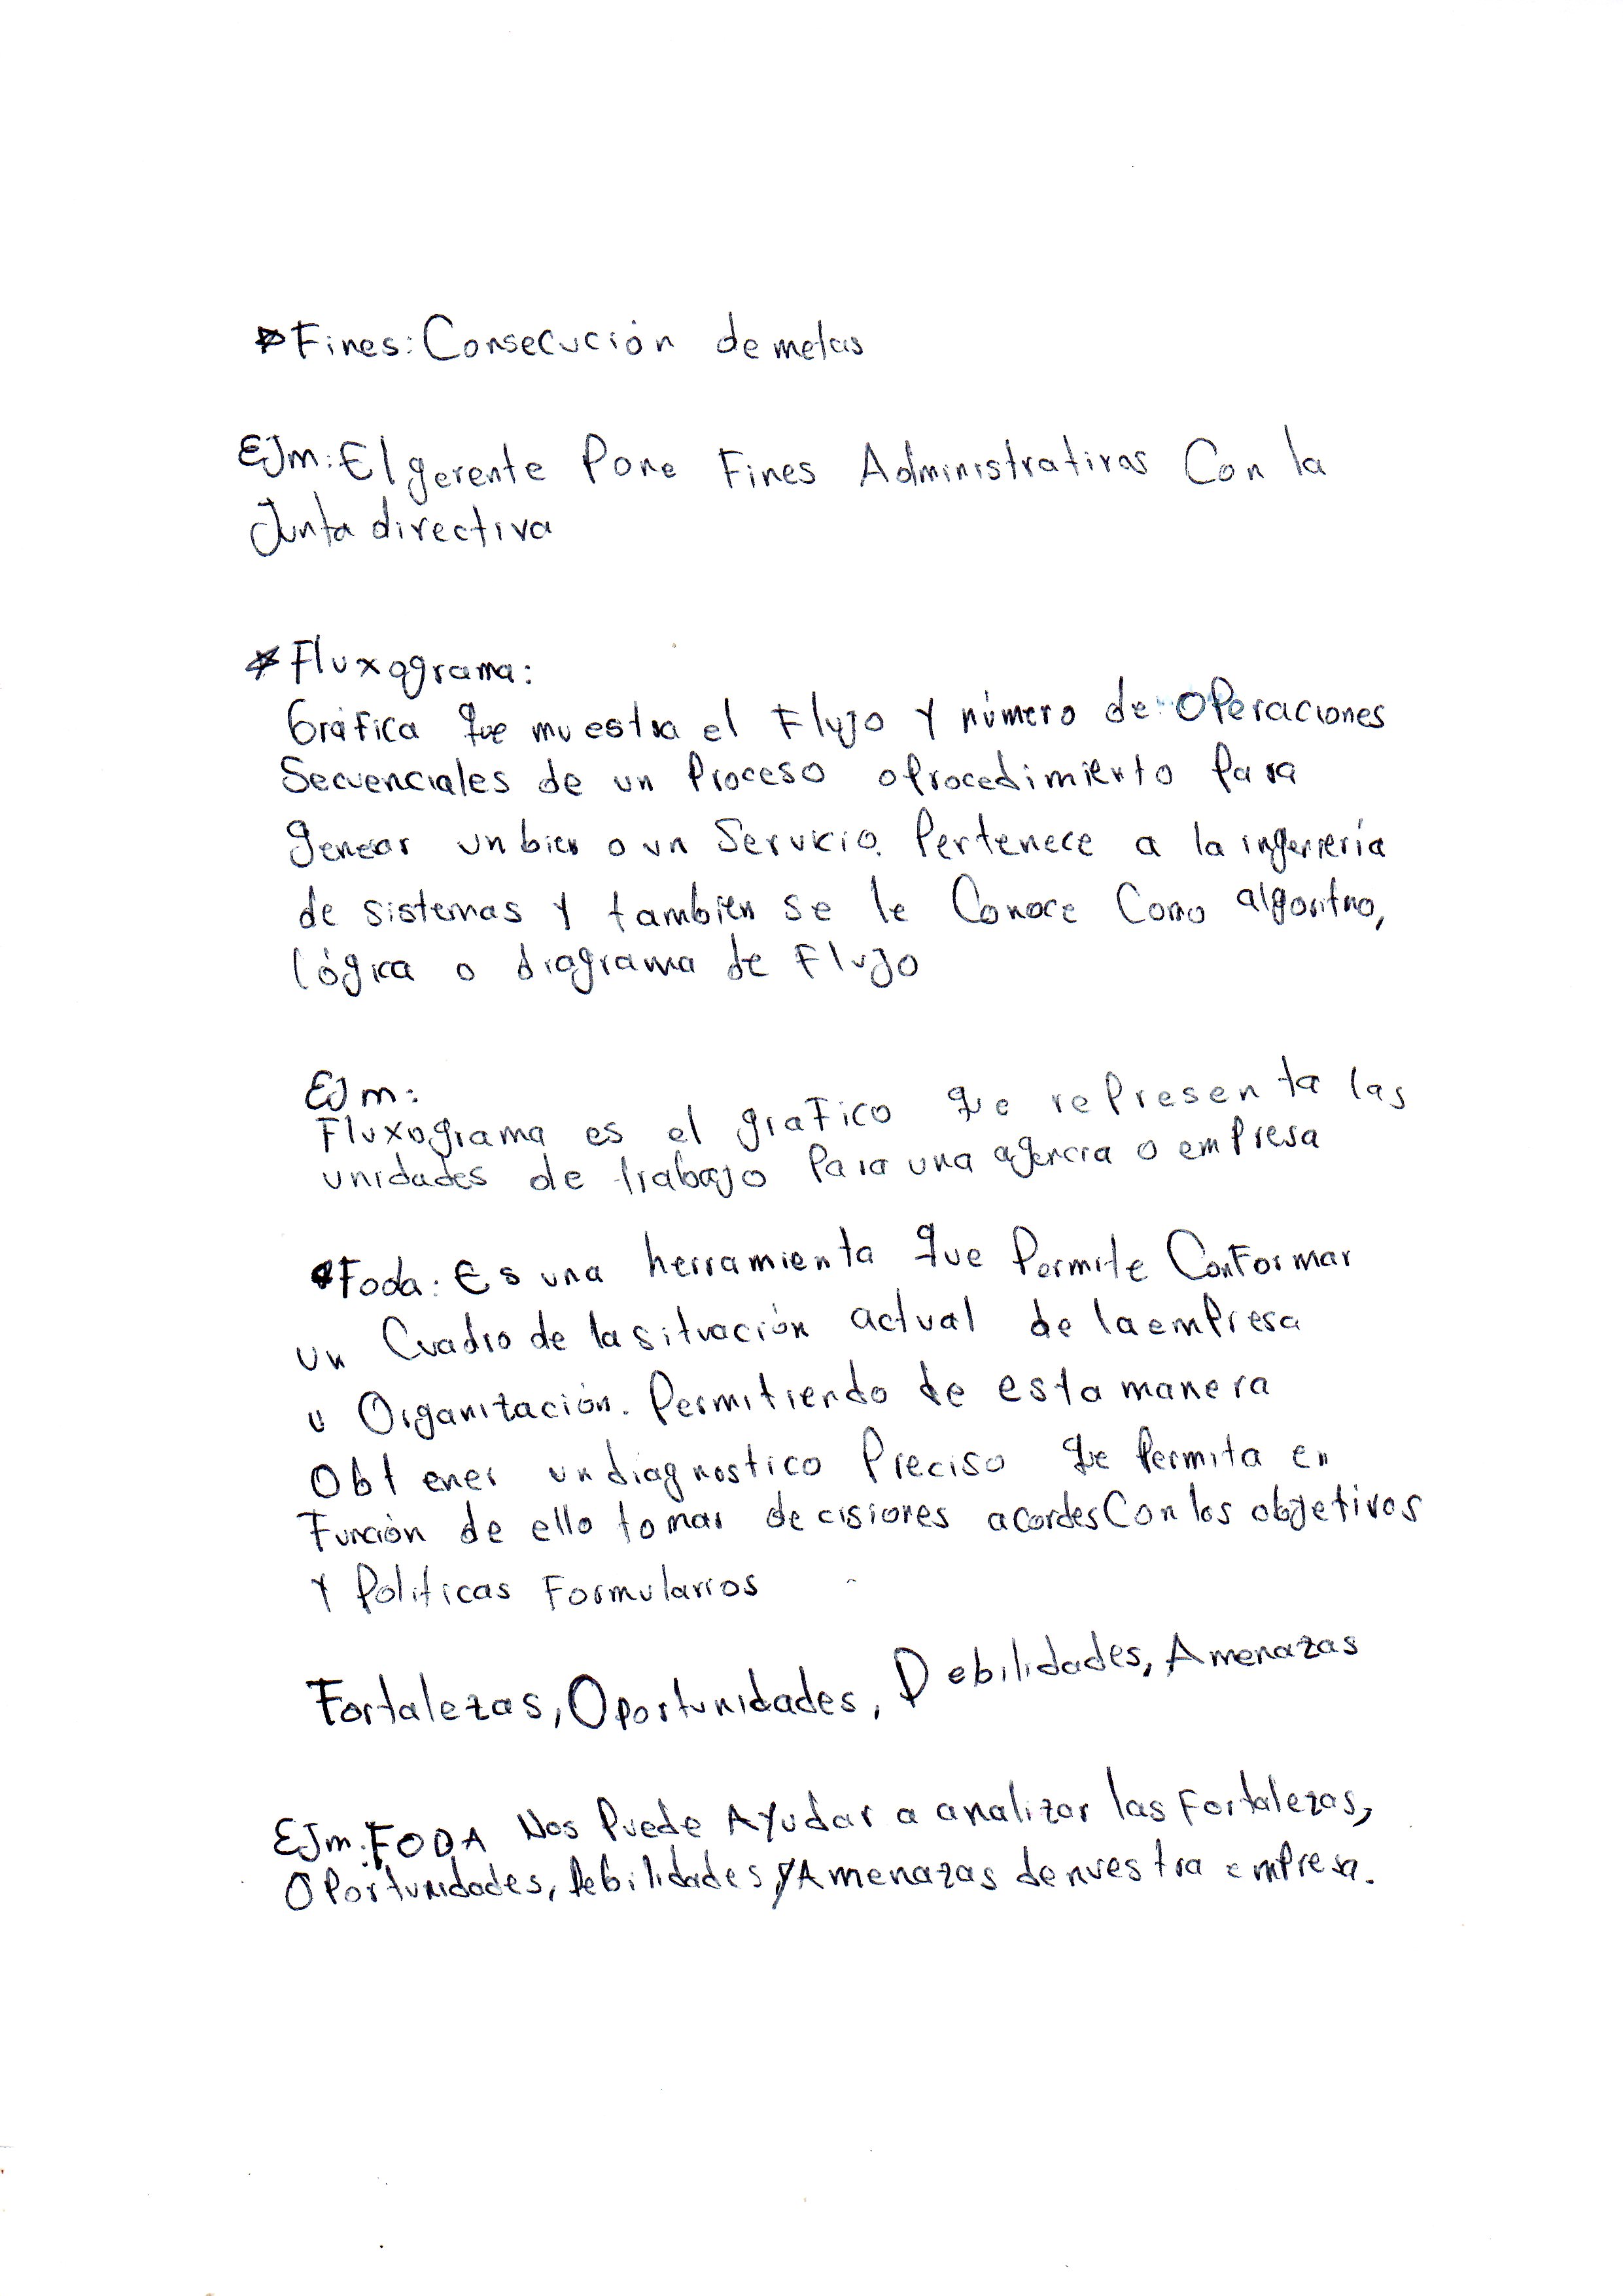 * Fines: Consecución de metas
EJm: El gerente Pone Fines Administrativos Con la
Junta directiva
* Fluxograma:
Gráfica que muestra el Flujo Y número de OPeraciones
Secuenciales de un Proceso o Procedimiento Para
generar un bien o un Servicio. Pertenece a la ingeniería
de sistemas Y tambien se le Conoce Como algoritmo,
lógica o diagrama de Flujo
EJm:
Fluxograma es el graFico que rePresenta las
unidades de trabajo Para una agencia o emPresa
* Foda: Es una herramienta que Permite ConFormar
un Cuadro de la situación actual de la emPresa
u Organización. Permitiendo de esta manera
Obtener un diagnostico Preciso que Permita en
Función de ello tomar decisiones acordes Con los objetivos
Y Politicas Formularios
Fortalezas, Oportunidades, Debilidades, Amenazas
EJm: FODA Nos Puede Ayudar a analizar las Fortalezas,
OPortunidades, Debilidades, Y Amenazas de nuestra emPresa.